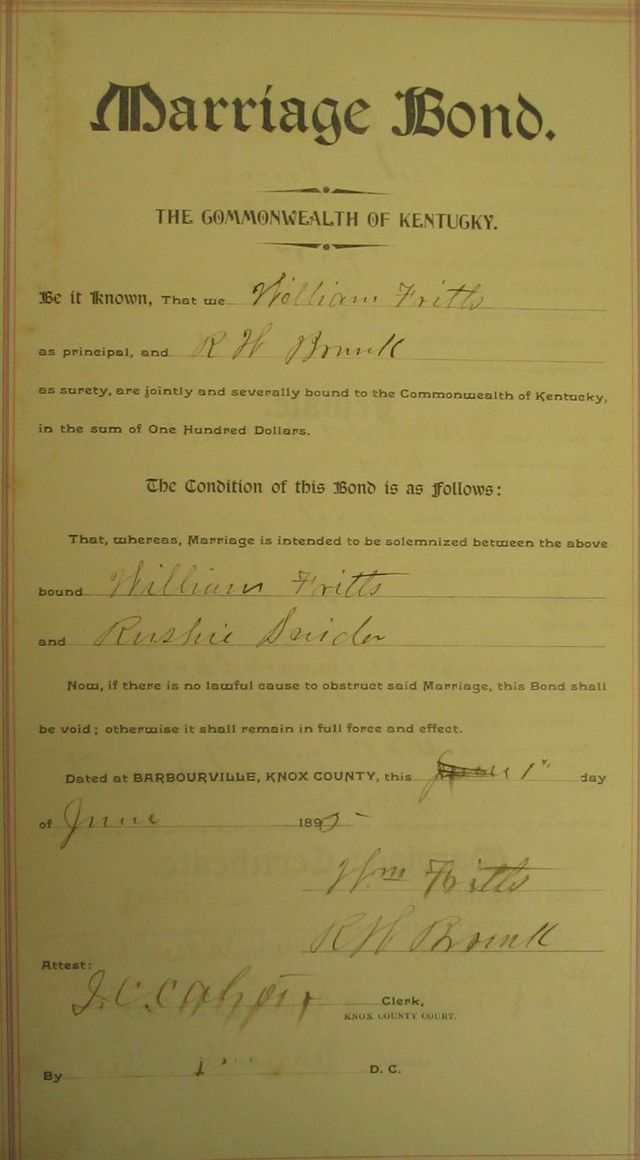 Marriage Bond.
THE COMMONWEALTH OF KENTUCKY.
Be it Known, That we William Fritts
as principal, and R H
as surety, are jointly and severally bound to the Commonwealth of Kentucky,
in the sum of One Hundred Dollars.
The Condition of this Bond is as follows:
That, whereas, Marriage is intended to be solemnized between the above
bound William Fritts
and Rushie Snider
Now, if there is no lawful cause to obstruct said Marriage, this Bond shall
be void; otherwise it shall remain in full force and effect.
Dated at BARBOURVILLE, KNOX COUNTY, this 1st day
of June 1895
Wm Fritts
R H
Attest:
J. C. Clerk,
KNOX COUNTY COURT.
By D. C.